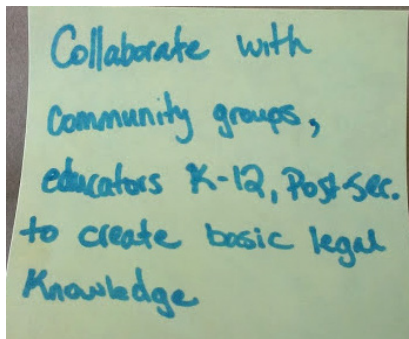 Collaborate with
community groups,
educators K-12, Post-Sec.
to create basic legal
Knowledge